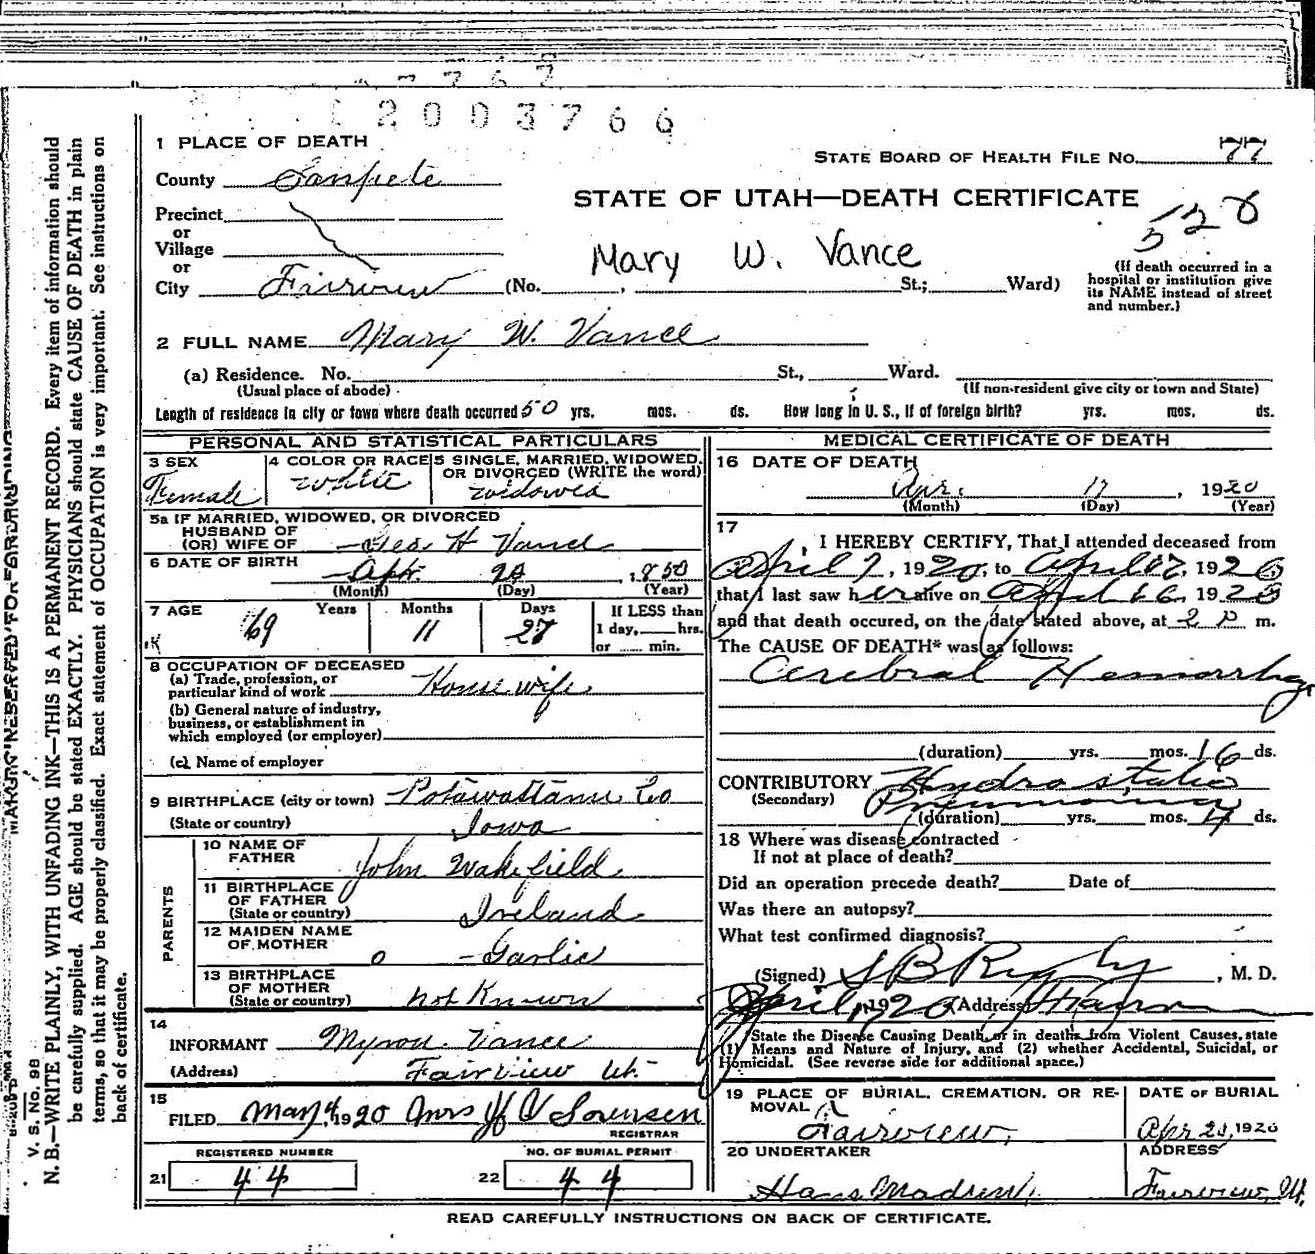 2003766
1 PLACE OF DEATH
STATE BOARD OF HEALTH FILE No. 77
County Sanpete
STATE OF UTAH—DEATH CERTIFICATE
528
Precinct
or
Village
or
City Fairview (No. , St.; Ward)
Mary W. Vance
(If death occurred in a
hospital or institution give
its NAME instead of street
and number.)
2 FULL NAME Mary W. Vance
(a) Residence. No. St., Ward.
(Usual place of abode) (If non-resident give city or town and State)
Length of residence in city or town where death occurred 50 yrs. mos. ds. How long in U. S., if of foreign birth? yrs. mos. ds.
PERSONAL AND STATISTICAL PARTICULARS
3 SEX Female
4 COLOR OR RACE White
5 SINGLE, MARRIED, WIDOWED,
OR DIVORCED (WRITE the word)
widowed
5a IF MARRIED, WIDOWED, OR DIVORCED
HUSBAND OF
(OR) WIFE OF Geo H Vance
6 DATE OF BIRTH Apr. 20, 1850
(Month) (Day) (Year)
7 AGE Years Months Days If LESS than
69 11 27 1 day, hrs.
or min.
8 OCCUPATION OF DECEASED
(a) Trade, profession, or
particular kind of work House wife
(b) General nature of industry,
business, or establishment in
which employed (or employer)
(c) Name of employer
9 BIRTHPLACE (city or town) Potawattamie Co
(State or country) Iowa
PARENTS
10 NAME OF
FATHER John Wakefield
11 BIRTHPLACE
OF FATHER
(State or country) Ireland
12 MAIDEN NAME
OF MOTHER - Garlic
13 BIRTHPLACE
OF MOTHER
(State or country) not Known
14
INFORMANT Myron Vance
(Address) Fairview Ut.
15
FILED May 4, 1920 Mrs H V Sorensen
REGISTRAR
REGISTERED NUMBER
21 44
NO. OF BURIAL PERMIT
22 44
MEDICAL CERTIFICATE OF DEATH
16 DATE OF DEATH
Apr. 17, 1920
(Month) (Day) (Year)
17
, I HEREBY CERTIFY, That I attended deceased from
April 2, 1920, to April 17, 1920,
that I last saw her alive on April 16, 1920
and that death occured, on the date stated above, at 2 P m.
The CAUSE OF DEATH* was as follows:
Cerebral Hemorrhage
(duration) yrs. mos. 16 ds.
CONTRIBUTORY Hydrostatic
(Secondary) Pneumonia
(duration) yrs. mos. 4 ds.
18 Where was disease contracted
If not at place of death?
Did an operation precede death? Date of
Was there an autopsy?
What test confirmed diagnosis?
(Signed) S B Rigby, M. D.
April, 1920 (Address)
State the Disease Causing Death, or in deaths from Violent Causes, state
(1) Means and Nature of Injury, and (2) whether Accidental, Suicidal, or
Homicidal. (See reverse side for additional space.)
19 PLACE OF BURIAL, CREMATION, OR RE-
MOVAL
Fairview,
DATE OF BURIAL
Apr 20, 1920
20 UNDERTAKER
Hans Madsen.
ADDRESS
Fairview, Ut.
READ CAREFULLY INSTRUCTIONS ON BACK OF CERTIFICATE.
MARGIN RESERVED FOR BINDING
V. S. No. 98
N. B.—WRITE PLAINLY, WITH UNFADING INK—THIS IS A PERMANENT RECORD. Every item of information should
be carefully supplied. AGE should be stated EXACTLY. PHYSICIANS should state CAUSE OF DEATH in plain
terms, so that it may be properly classified. Exact statement of OCCUPATION is very important. See instructions on
back of certificate.